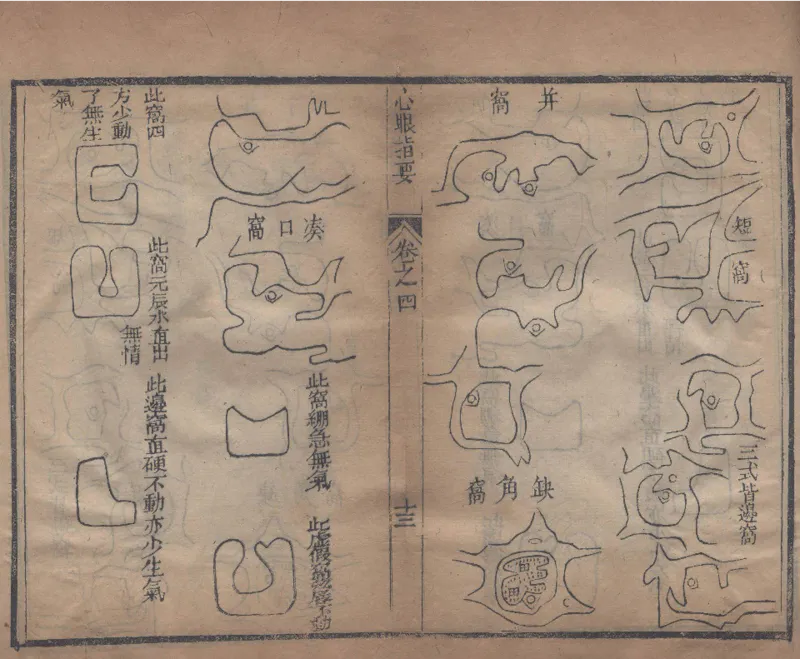 短窩
三式皆邊窩
并窩
缺角窩
心眼指要
卷之四
十三
凑口窩
此窩繃急無氣
此虛假不動
此窩四
方少動
了無生
氣
此窩元辰水直出
無情
此邊窩直硬不動亦少生氣